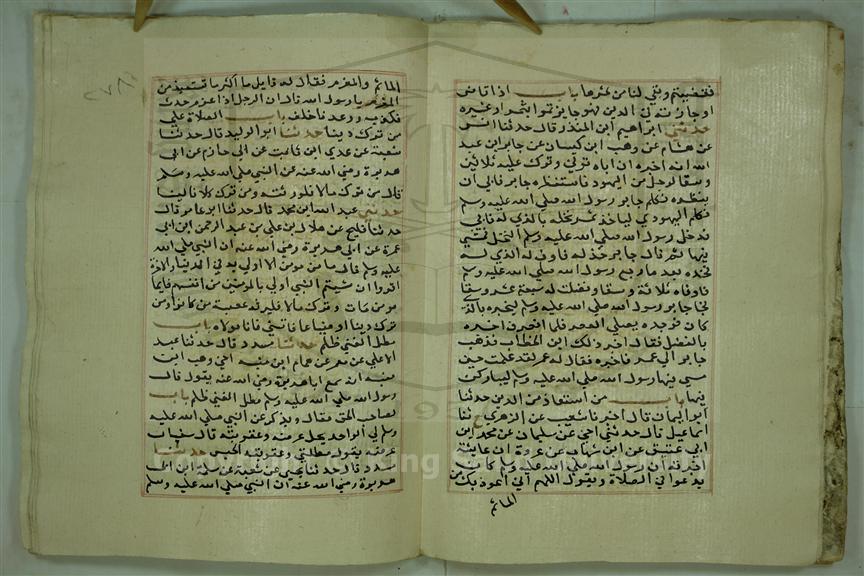 فقضيتهم وبقي لنا من ثمرها باب اذا قاص
او جازفه في الدين فهو جايز تمرا بتمر او غيره
حدثني ابراهيم ابن المنذر قال حدثنا انس
عن هشام عن وهب ابن كيسان عن جابر ابن عبد
الله انه اخبره ان اباه توفي وترك عليه ثلاثين
وسقا لرجل من اليهود فاستنظره جابر فابى ان
ينظره فكلم جابر رسول الله صلى الله عليه وسلم
فكلم اليهودي لياخذ ثمر نخله بالذي له فابى
فدخل رسول الله صلى الله عليه وسلم النخل فمشى
فيها ثم قال جابر جذ له فاوف له الذي له
فجذه بعد ما رجع رسول الله صلى الله عليه وسلم
فاوفاه ثلاثة وسقا وفضلت له سبعة عشر وسقا
فجا جابر رسول الله صلى الله عليه وسلم ليخبره بالذي
كان فوجده يصلي العصر فلما انصرف اخبره
بالفضل فقال اخبر ذلك ابن الخطاب فذهب
جابر الى عمر فاخبره فقال له عمر لقد علمت حين
مشى فيها رسول الله صلى الله عليه وسلم ليباركن
فيها باب من استعاذ من الدين حدثنا
ابو اليمان قال اخبرنا شعيب عن الزهري ح ثنا
اسماعيل قال حدثني اخي عن سليمان عن محمد ابن
ابي عتيق عن ابن شهاب عن عروة ان عايشة
اخبرته ان رسول الله صلى الله عليه وسلم كان
يدعوا في الصلاة ويقول اللهم اني اعوذ بك من
الماثم
الماثم والمغرم فقال له قايل ما اكثر ما تستعيذ من
المغرم يا رسول الله قال ان الرجل اذا غرم حدث
فكذب ووعد فاخلف باب الصلاة على
من ترك دينا حدثنا ابو الوليد قال حدثنا
شعبة عن عدي ابن ثابت عن ابي حازم عن ابي
هريرة رضي الله عنه عن النبي صلى الله عليه وسلم
قال من ترك مالا فلورثته ومن ترك كلا فالينا
حدثني عبد الله ابن محمد قال حدثنا ابو عامر قال
حدثنا فليح عن هلال بن علي بن عبد الرحمن ابن ابي
عمرة عن ابي هريرة رضي الله عنه ان النبي صلى الله
عليه وسلم قال ما من مومن الا اولى به في الدنيا والاخرة
اقروا ان شيتم النبي اولى بالمومنين من انفسهم فايما
مومن مات وترك مالا فليرثه عصبته من كانوا ومن
ترك دينا او ضياعا فاتيني فانا مولاه باب
مطل الغني ظلم حدثنا مسدد قال حدثنا عبد
الاعلى عن معمر عن همام ابن منبه اخي وهب ابن
منبه انه سمع ابا هريرة رضي الله عنه يقول قال
رسول الله صلى الله عليه وسلم مطل الغني ظلم باب
لصاحب الحق مقال ويذكر عن النبي صلى الله عليه
وسلم لي الواجد يحل عرضه وعقوبته قال سفيان
عرضه يقول مطلتني وعقوبته الحبس حدثنا
مسدد قال حدثنا يحيى عن شعبة عن سلمة عن ابي
هريرة رضي الله عنه ان النبي صلى الله عليه وسلم